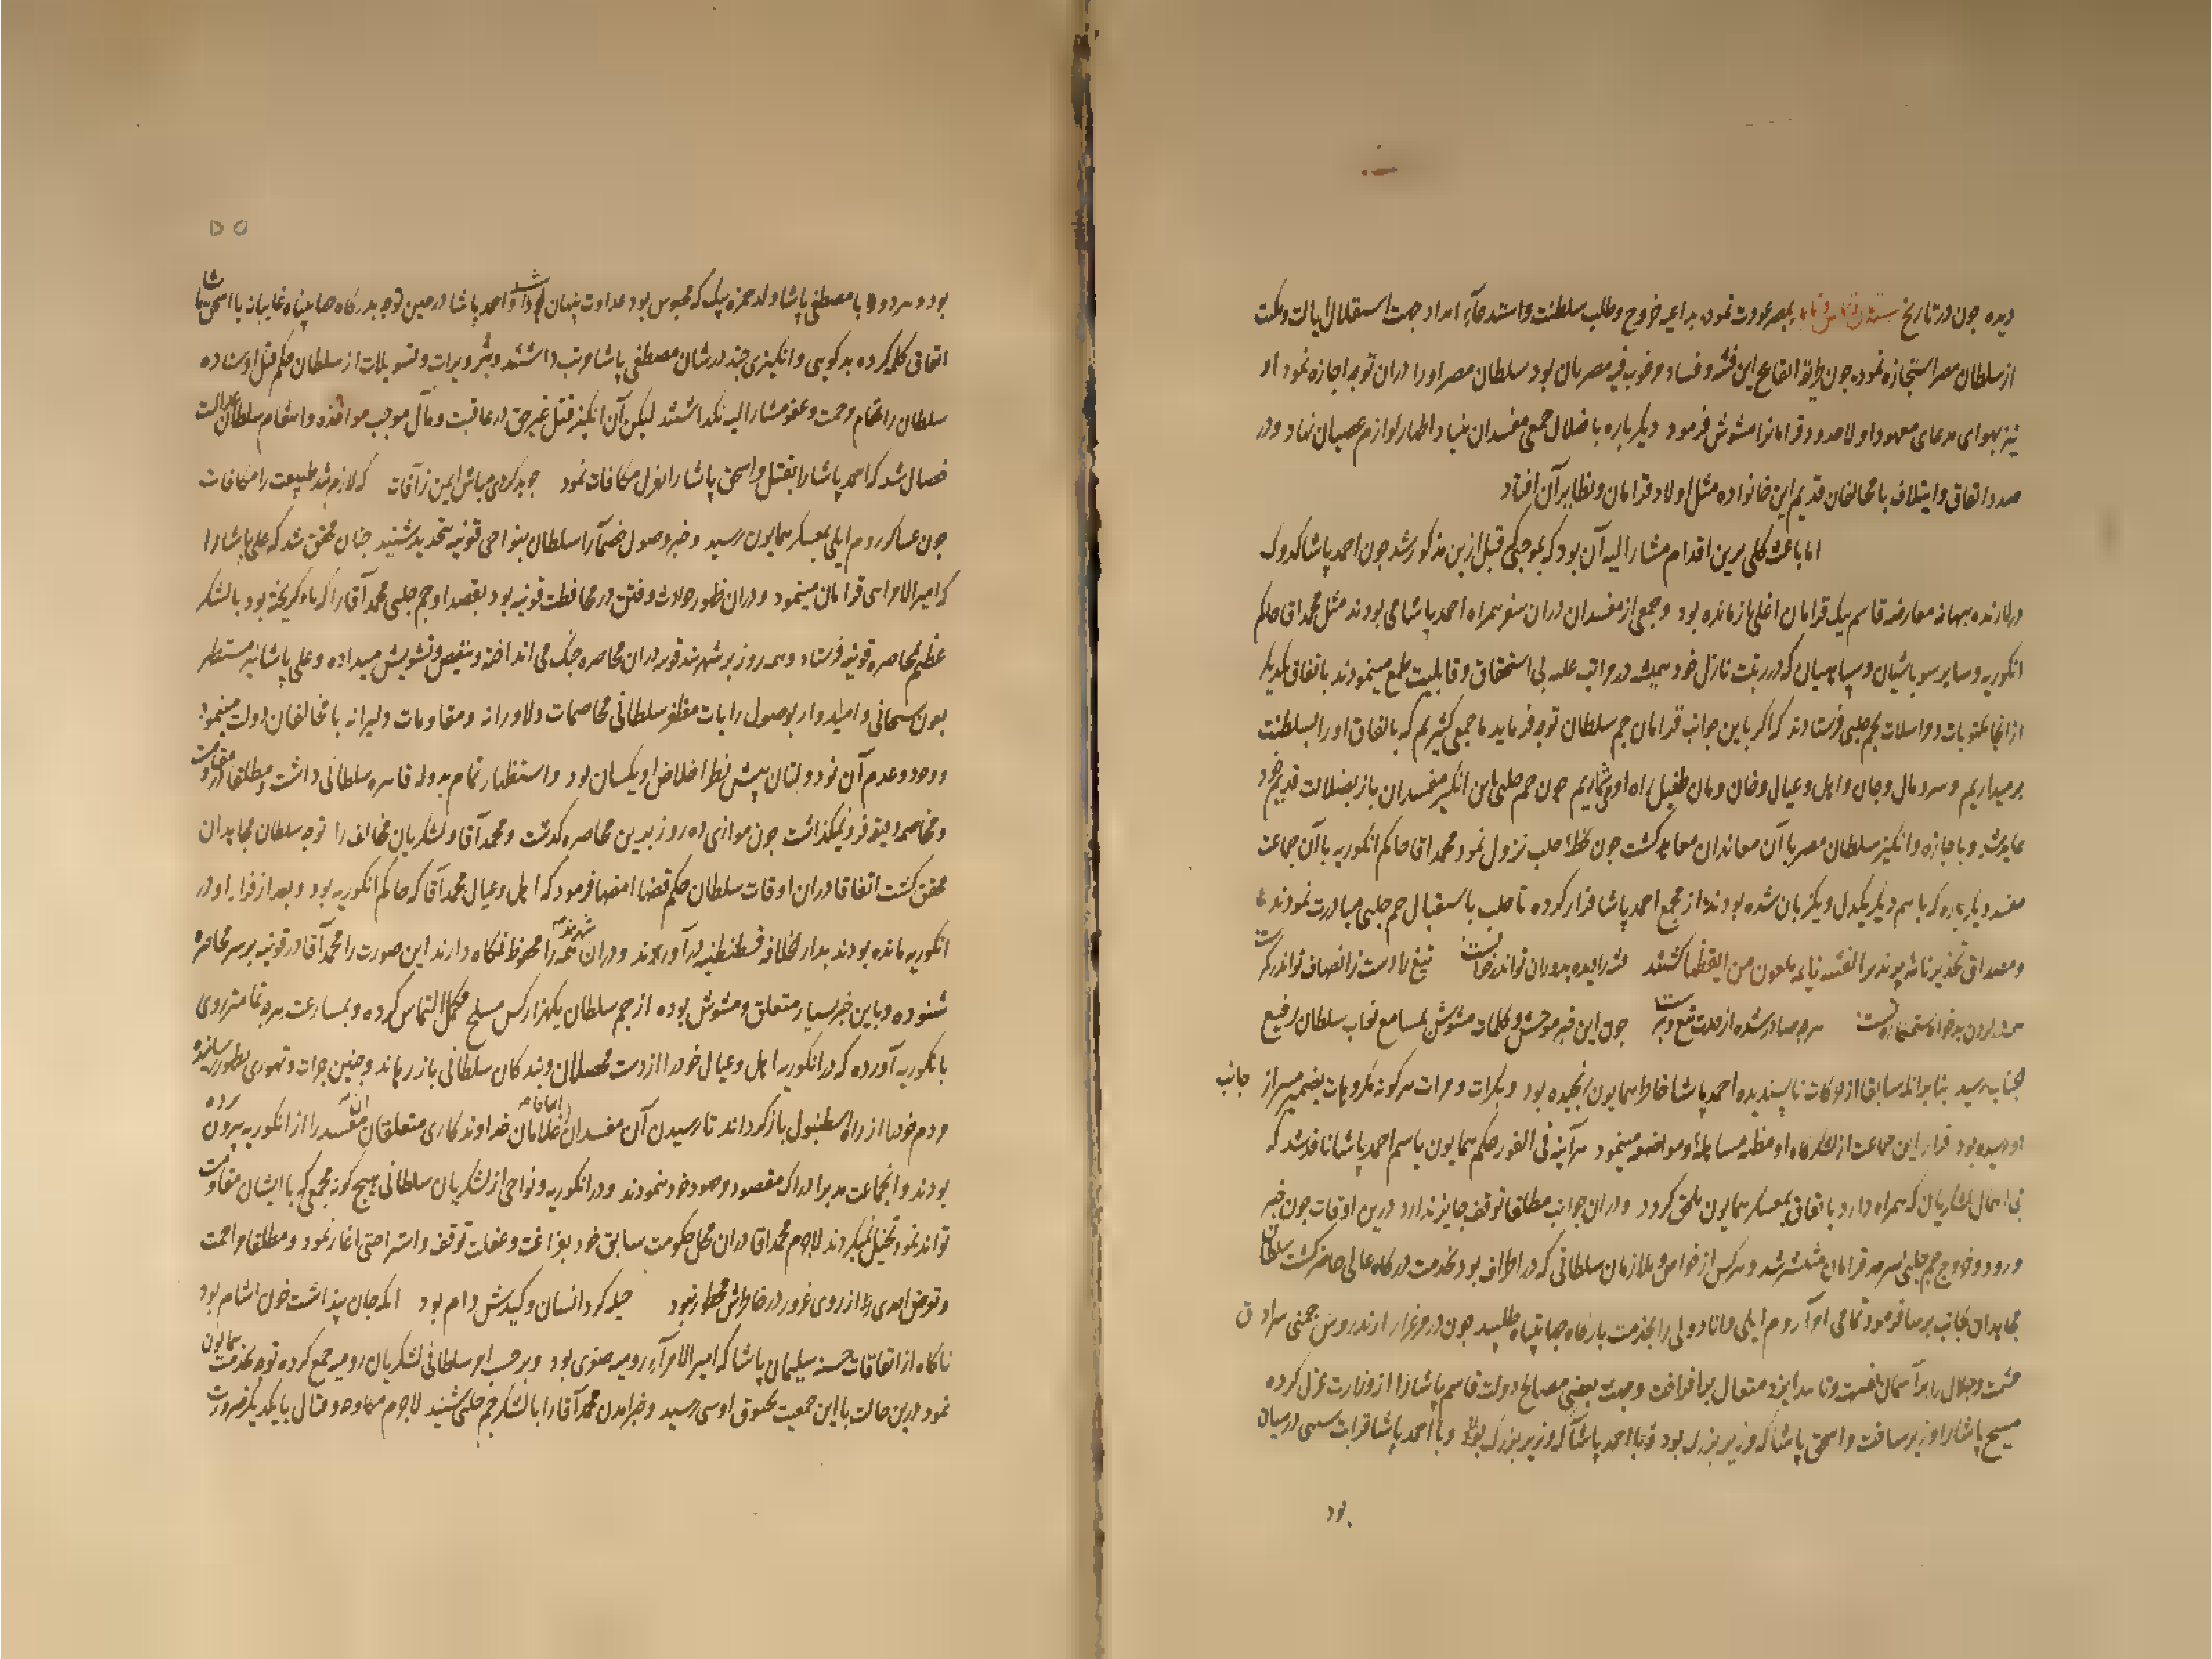 دیده جون در تاریخ بمصر عودت نموده بداعیه خروج و طلب سلطنت و استدعاء امداد جهت استقلال ایالت و مملکت
از سلطان مصر استجازه نموده جون این فتنه و فساد مصریان بود سلطان مصر اورا دران توجه اجازه نمود او
نیز بهوای مدعای معهود اولا حدود قرامانرا مشوش فرمود دیکر باره با ضلال جمعی مفسدان بنیاد اظهار لوازم عصیان نهاد و در
صدد اتفاق و ایتلاف با مخالفان قدیم این خانواده مثل اولاد قرامان و نظایر آن افتاد
اما باعث کلی برین اقدام مشار الیه آن بود که بموجبی که قبل ازین مذکور شد جون احمد پاشا کدوک
در لارنده ببهانه معارضه قاسم بیک قرامان اغلی باز مانده بود و جمعی از مفسدان دران سفر همراه احمد پاشا می بودند مثل محمد اقا حاکم
انکوریه و سایر سوباشیان و سپاهیان که در رتبت نازل خود همیشه در مراتب علیه بی استحقاق و قابلیت طمع مینمودند باتفاق یکدیکر
از انجا مکتوبات و مراسلات بجم جلبی فرستادند که اکر باین جوانب قرامان جم سلطان توجه فرماید ما جمعی کثیریم که باتفاق اورا بسلطنت
بر میداریم و سر و مال و جان و اهل و عیال و خان و مان طفیل راه او میشماریم جون جم جلبی باین انکیز مفسدان باز بضلالت قدیم خود
عاید شد و با جازه و انکیز سلطان مصر با آن معاندان معاهد کشت جون بخطه حلب نزول نمود محمد اقا حاکم انکوریه با آن جماعت
مفسد دیکر باره که باهم دیکر یکدل و یکزبان شده بودند از مجمع احمد پاشا فرار کرده تا حلب باستقبال جم جلبی مبادرت نمودند
و مصداق الفتنة نایمة ملعون من ایقظها کشتند فتنه را دیده بدوران تواند خاست تیغ را دست ز انصاف تواند
هرجه صادر شده از جون این خبر موحش و کلمات مشوش بمسامع نواب سلطان رفیع
جناب رسید بنابر انکه سابقا از حرکات ناپسندیده احمد پاشا خاطر همایون رنجیده بود و بکرات و مرات هر کونه مکروهات بضمیر میر از جانب
او رسیده بود فرار این جماعت از لشکرکاه او مظنه مساهله و مواضعه مینمود هر آینه فی الفور حکم همایون باسم احمد پاشا نافذ شد که
بی اهمال لشکریان که همراه دارد باتفاق بمعسکر همایون ملحق کردد و دران جوانب مطلقا توقف جایز ندارد درین اوقات جون خبر
ورود و خروج جم جلبی بسرحد قرامان منتشر شد و هر کس از خواص و ملازمان سلطانی که در اطراف بود بخدمت درکاه عالی حاضر کشت سلطان
مجاهدان بجانب برسا فرمود تمامی امراء روم ایلی و اناطولی را بخدمت بارکاه جهانپناه طلبید جون در مرغزار جمنی سرادق
حشمت و جلال را بر آسمان ایزد متعال بر افراخت و جهت بعضی مصالح دولت قاسم پاشا را از وزارت عزل کرده
مسیح پاشا را وزیر ساخت و اسحق پاشا که وزیر بزرک بود و با احمد پاشا قرابت سببی در میان
بود
۵۵
بود و هر دورا با مصطفی پاشا ولد حمزه بیک که محبوس بود عداوت پنهان و احمد پاشا در حین توجه بدرکاه جهانپناه غایبانه با اسحق پاشا
اتفاق کلمه کرده بدکویی و انکیزی جند در شان مصطفی پاشا مرتب داشتند و بتزویرات و تسویلات از سلطان حکم قتل او ستاده
سلطان را مقام رحمت و عفو مشار الیه نکذاشتند لیکن آن انکیز قتل غیر حق در عاقبت و مآل موجب مواخذه و انتقام سلطان عدالت
خصال شد که احمد پاشا را بقتل و اسحق پاشا را بعزل مکافات نمود جو بد کردی مباش ایمن ز آفات که لازم شد طبیعت را مکافات
جون عساکر روم ایلی بمعسکر همایون رسید و خبر وصول خصم را سلطان بنواحی قونیه بتجدید شنید جنان محقق شد که علی پاشا را
که امیر الامرایی قرامان مینمود و دران ظهور حوادث و فتن در محافظت قونیه بود بقصد او جم جلبی محمد آقا را که باو کریخته بود با لشکر
عظیم بمحاصره قونیه فرستاد و همه روز بر شهربند قونیه دران محاصره جنک می انداخته و تشویش میداده و علی پاشا نیز مستظهر
بعون سبحانی و امیدوار بوصول رایات مظفر سلطانی مخاصمات دلاورانه و مقاومات دلیرانه با مخالفان دولت مینمود
و وجود و عدم آن پیش نظر اخلاص او یکسان بود و استظهار تمام بدولت قاهره سلطانی داشت و مطلقا در مقاومت
و مخاصمه دقیقه فرو نمیکذاشت جون موازی ده روز بدین محاصره کذشت و محمد آقا و لشکریان مخالف را توجه سلطان مجاهدان
محقق کشت اتفاقا دران اوقات سلطان حکم قضا امضا فرمود که اهل و عیال محمد آقا که حاکم انکوریه بود و بعد از فرار او در
انکوریه مانده بودند بدار الخلافه قسطنطنیه در آوردند و دران شهربند همه را محفوظ نکاه دارند این صورت را محمد آقا در قونیه بر سر محاصره
شنوده و باین خبر بسیار متعلق و مشوش بوده از جم سلطان یکهزار کس مسلح مکمل التماس کرده و بمسارعت هرجه تمامتر روی
بانکوریه آورده که در انکوریه اهل و عیال خود را از دست محصلان و بندکان سلطانی باز رهاند و جنین جرات و تهوری بظهور رسانیده
مردم خود را از راه اسطنبول باز کرداند تا رسیدن آن مفسدان غلامان خداوندکاری متعلقان آن مفسد را از انکوریه بیرون برده
بودند و انجماعت مدبر ادراک مقصود و حصود خود ننمودند و در انکوریه و نواحی از لشکریان سلطانی هیچ کونه مجمعی که با ایشان مقاومت
تواند نمود تخیل نمیکردند لاجرم محمد اقا دران محل حکومت سابق خود بفراغت و غفلت توقف و استراحتی اغاز نمود و مطلقا مزاحمت
و تعرض احدی را از روی غرور در خاطرش خطور نبود حیله کر دانسان و کیدش دام بود انکه جان پنداشت خون اشام بود
ناکاه از اتفاقات حسنه سلیمان پاشا که امیر الامراء رومیه صغری بود و بر حسب امر سلطانی لشکریان رومیه جمع کرده توجه بخدمت همایون
نمود درین حالت با این جمعیت رسید و خبر آمدن محمد آقا را با لشکر جم جلبی شنید لاجرم مکاوحه و قتال با یکدیکر ضرورت